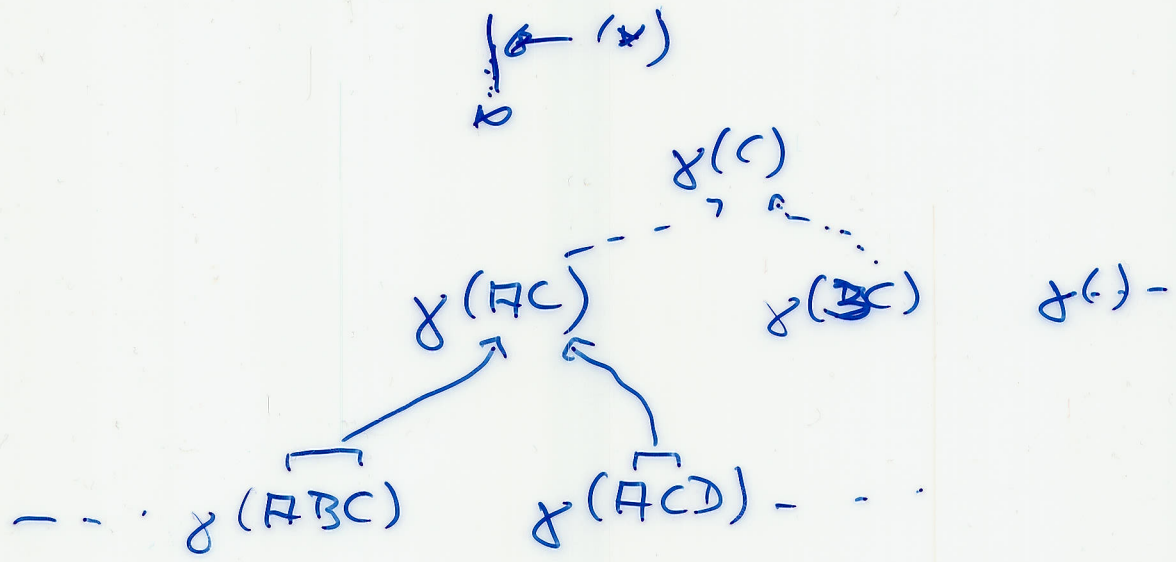 (*)
γ(C)
γ(AC) γ(BC) γ(..) -
--- · γ(ABC) γ(ACD) - - ·